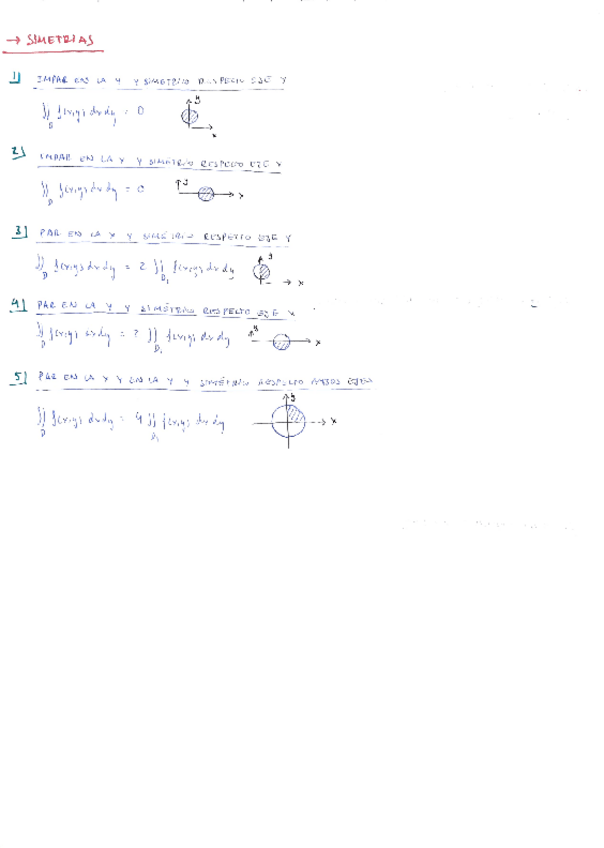 → SIMETRIAS
1) IMPAR EN LA Y Y SIMETRIO RESPECTO EJE Y
∬ f(x,y) dx dy = 0
D
y
x
2) IMPAR EN LA Y Y SIMÉTRIO RESPECTO EJE X
∬ f(x,y) dx dy = 0
D
y
x
3) PAR EN LA X Y SIMÉTRIO RESPECTO EJE Y
∬ f(x,y) dx dy = 2 ∬ f(x,y) dx dy
D D₁
y
x
4) PAR EN LA Y Y SIMÉTRIO RESPECTO EJE X
∬ f(x,y) dx dy = 2 ∬ f(x,y) dx dy
D D₁
y
x
5) PAR EN LA X Y EN LA Y Y SIMÉTRIO RESPECTO AMBOS EJES
∬ f(x,y) dx dy = 4 ∬ f(x,y) dx dy
D D₁
y
x